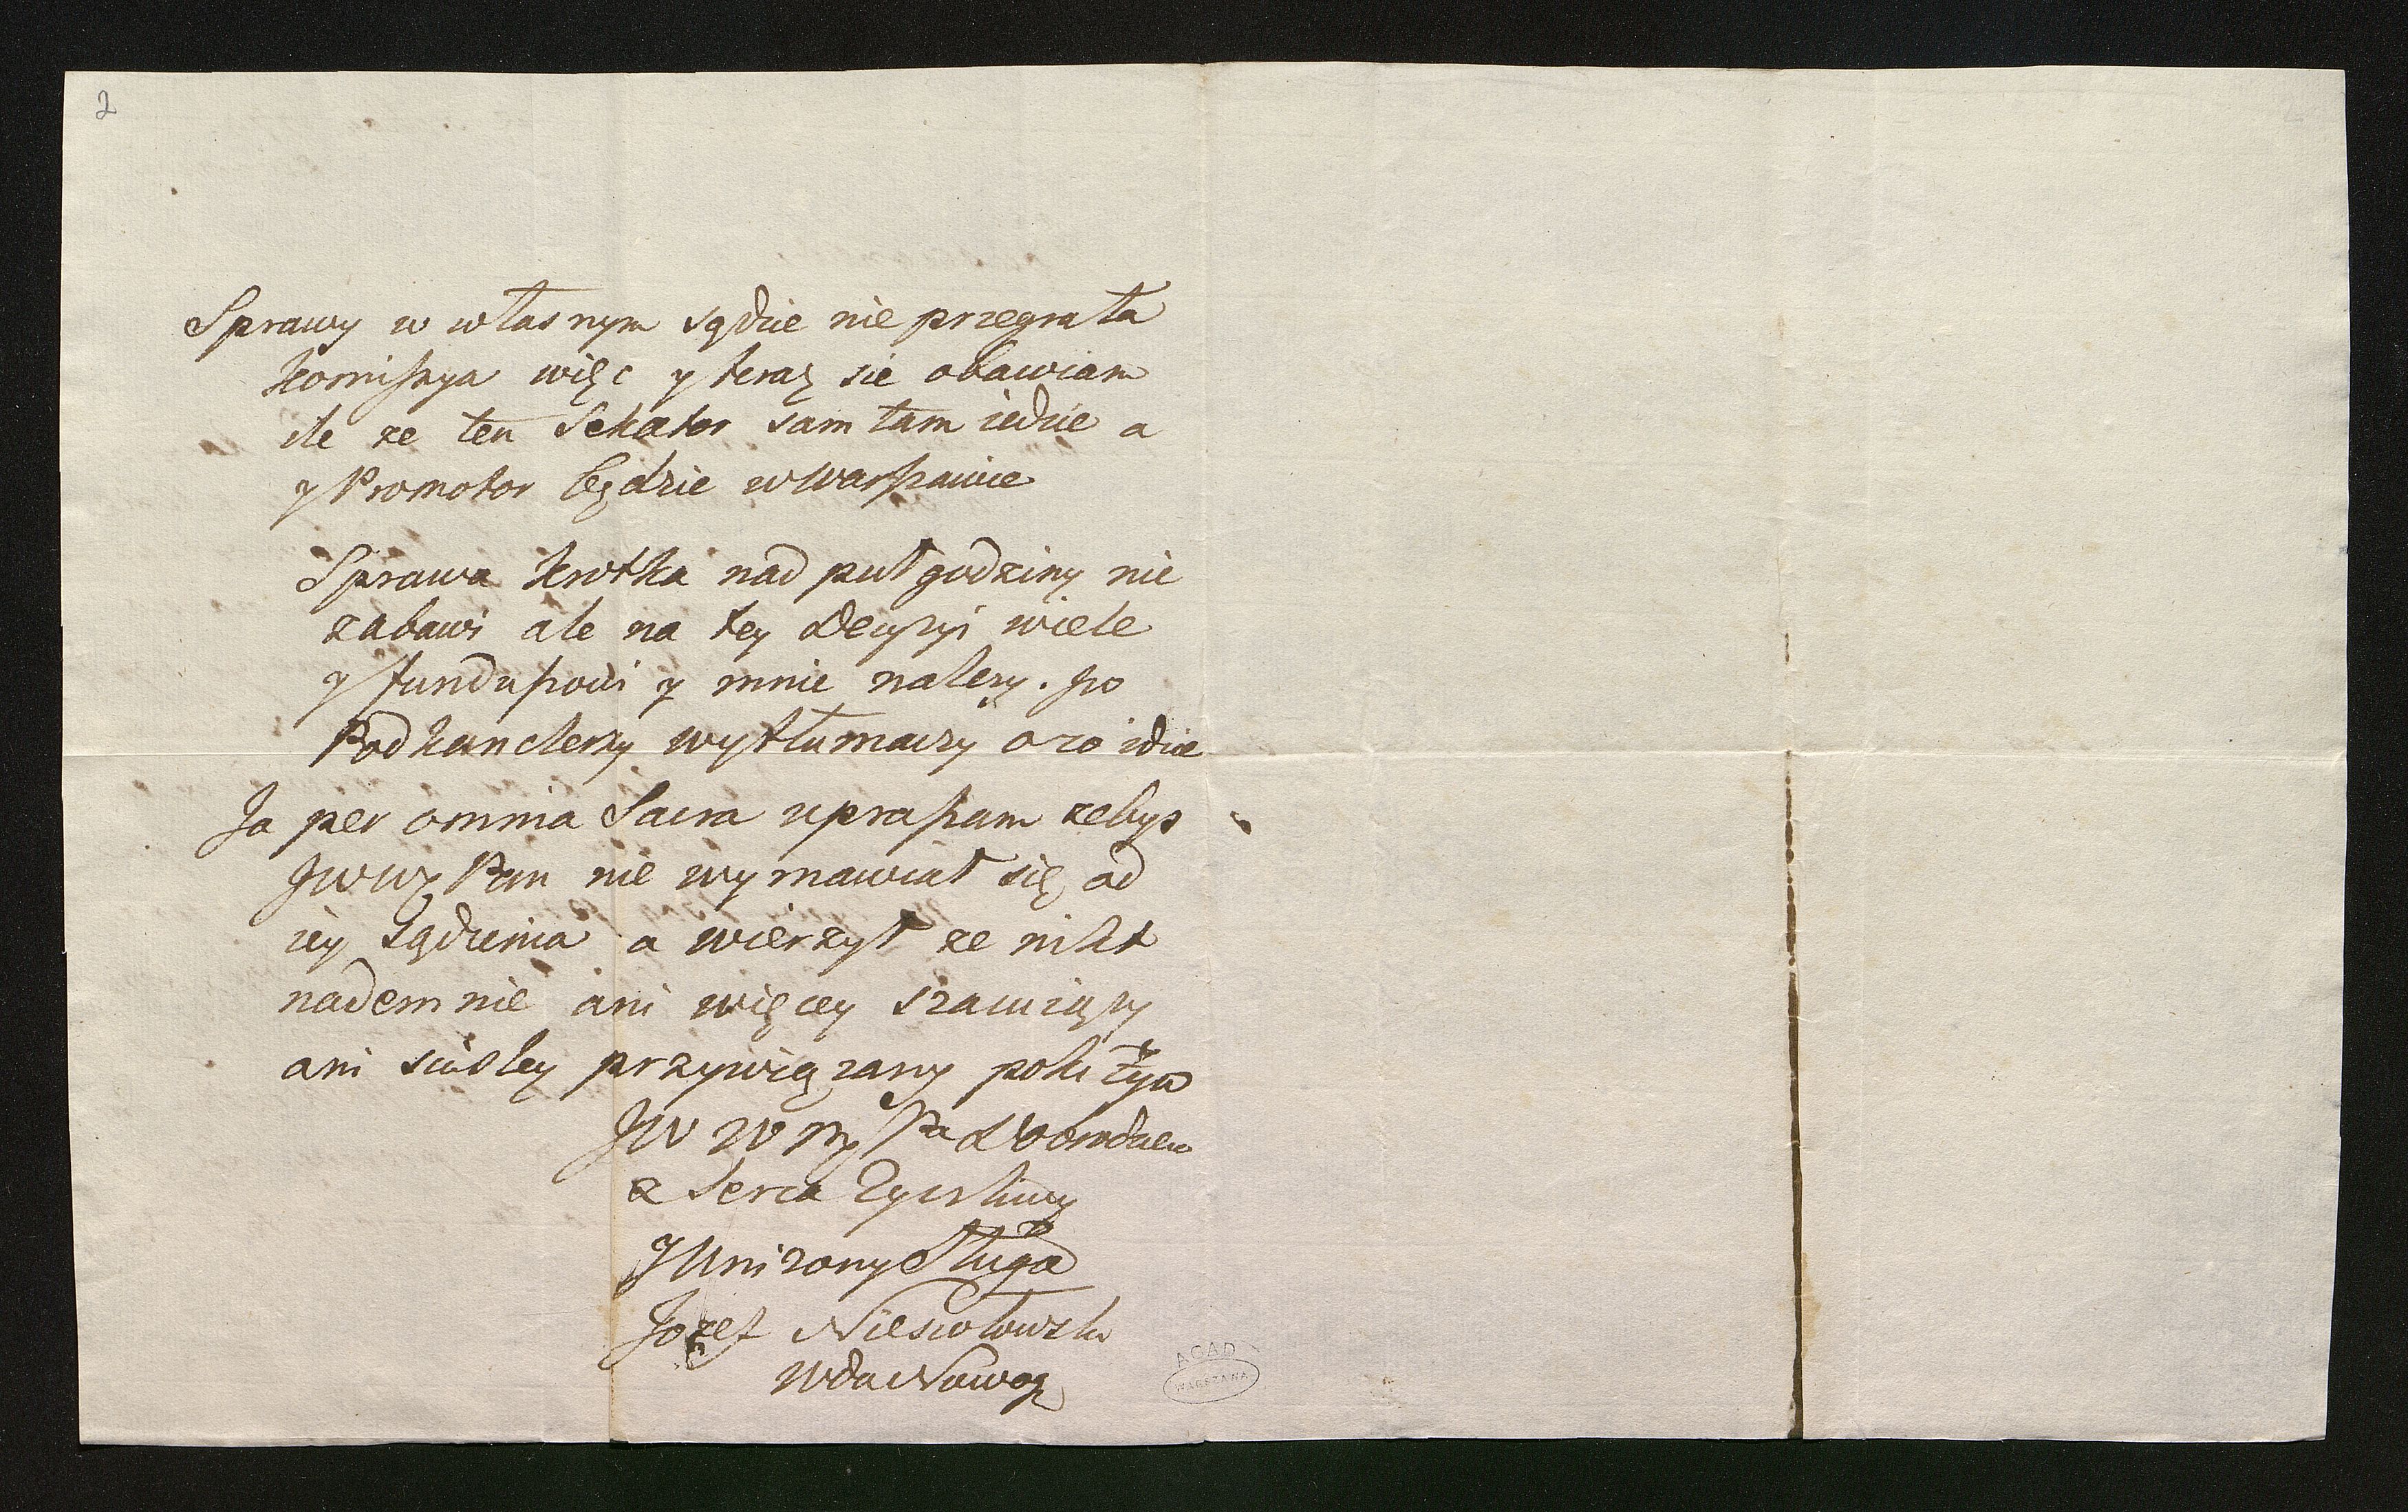 2
Sprawy w własnym sądzie nie przegrała
Komiszya więc y teraz sie obawiam
ile ze ten Sekator sam tam iedzie a
y Promotor będzie w Warszawie
Sprawa krotka nad puł godziny nie
zabawi ale na tey Decyzyi wiele
y funduszowi y mnie należy. Jvo
Podkanclerzy wytłumaczy o co idzie
Ja per omnia Sacra upraszam zebys
JWWz Pan nie wymawiał się od
iey sądzenia a wierzył ze nikt
nademnie ani więcey szacuiący
ani scisley przywiązany poki żyie
JW W Pa Dobrodzieia
z Serca Zyczliwy
y Unizony Sługa
Jozef Niesiołowski
Wda Nowog
AGAD
WARSZAWA